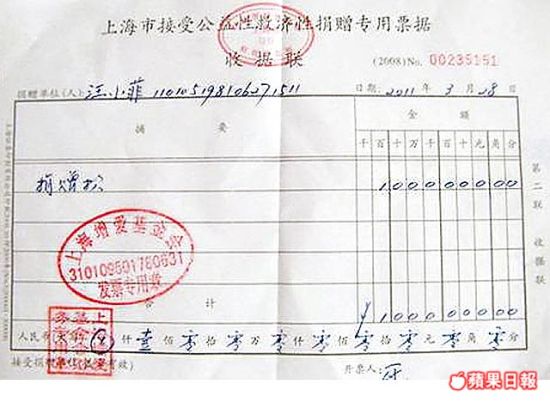 上海市接受公益性救济性捐赠专用票据
收据联 (2008)No. 00235151
捐赠单位(人): 汪小菲 110105198106271511 日期: 2011年 3月 28日
摘要 金额
千百十万千百十元角分
捐赠款 1,00000000
第二联 收据联
上海增爱基金会
310109501780631
发票专用章
合计 ¥1,00000000
人民币(大写) ⊗仟壹佰零拾零万零仟零佰零拾零元零角零分
接受捐赠单位(盖章有效) 开票人:
蘋果日報